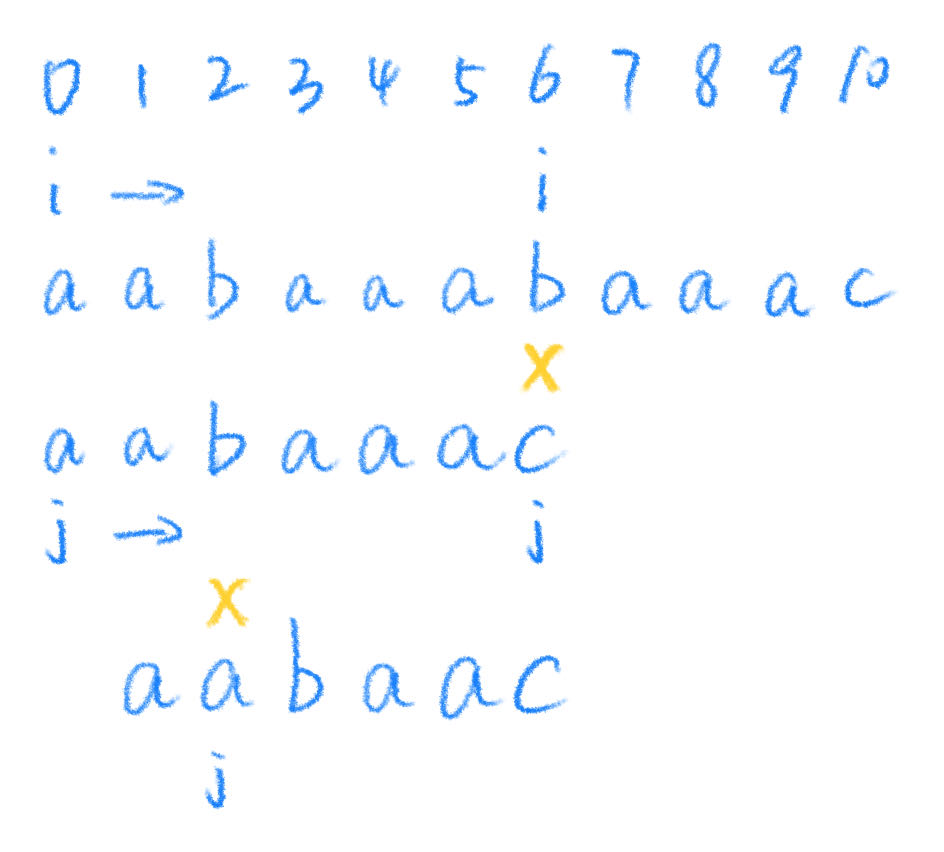 0 1 2 3 4 5 6 7 8 9 10
i → i
a a b a a a b a a a c
x
a a b a a a c
j → j
x
a a b a a c
j